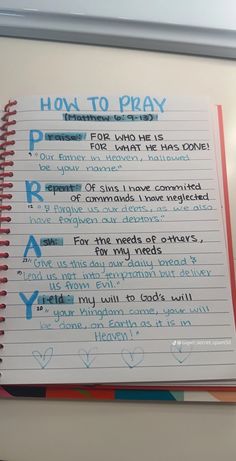 HOW TO PRAY
(Matthew 6:9-13)
Praise: FOR WHO HE IS
FOR WHAT HE HAS DONE!
"Our Father in Heaven, hallowed
be your name."
Repent: Of sins I have commited
of commands I have neglected
"& Forgive us our debts, as we also
have forgiven our debtors."
Ask: For the needs of others,
for my needs
"Give us this day our daily bread &
Lead us not into temptation but deliver
us from Evil."
Yield: my will to God's will
10 "your Kingdom come, your will
be done, on Earth as it is in
Heaven!"